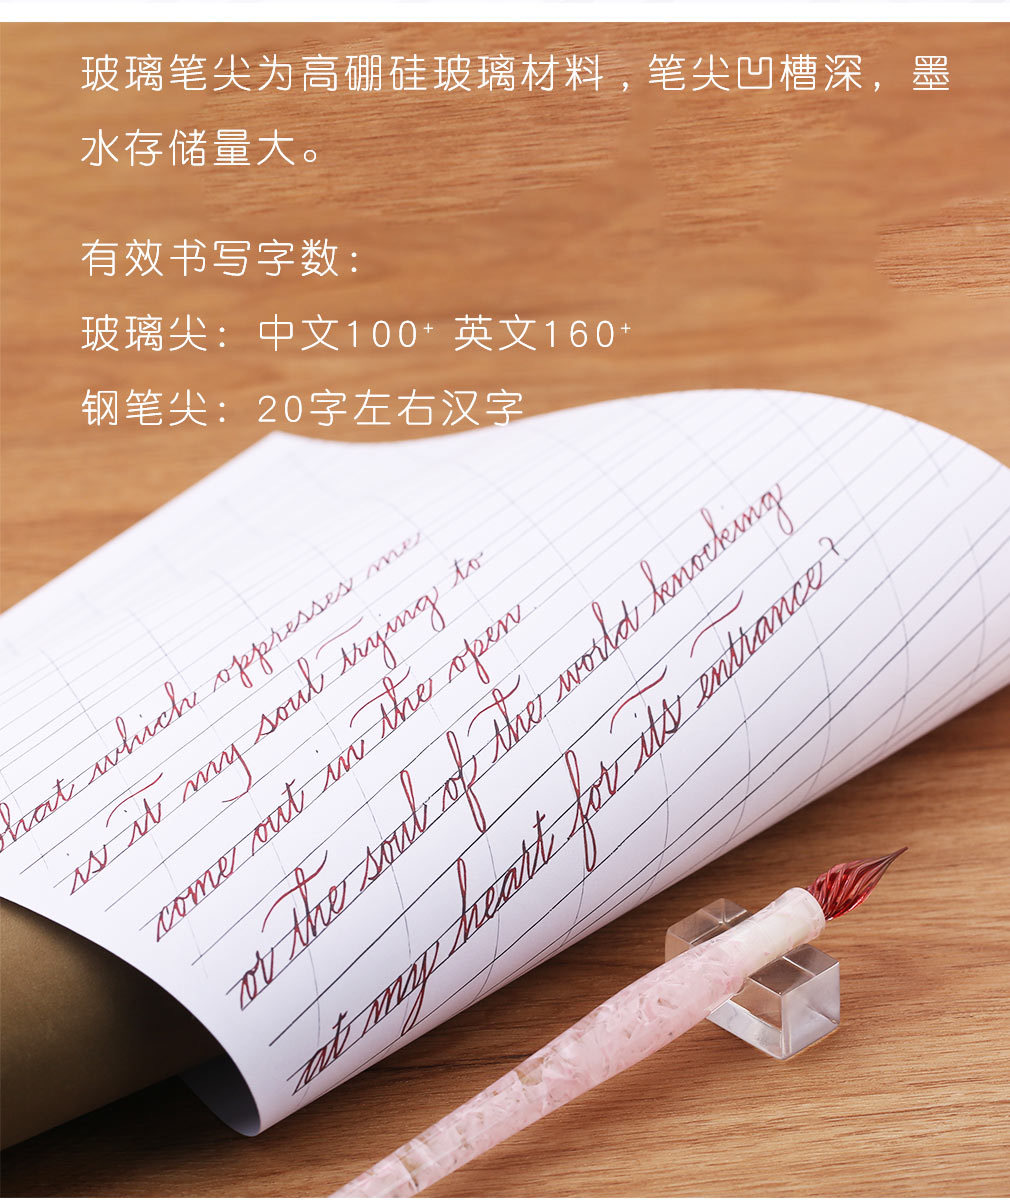 玻璃笔尖为高硼硅玻璃材料，笔尖凹槽深，墨
水存储量大。
有效书写字数：
玻璃尖：中文100+ 英文160+
钢笔尖：20字左右汉字
what which oppresses me
is it my soul trying to
come out in the open
or the soul of the world knocking
at my heart for its entrance?